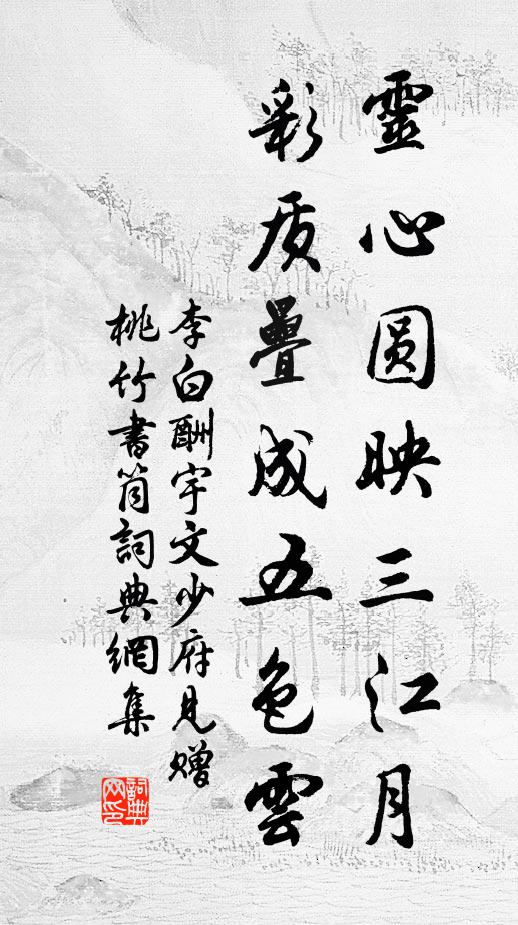 靈心圆映三江月
彩质疊成五色雲
李白酬宇文少府見赠
桃竹書筒詞典網集
詞典网印